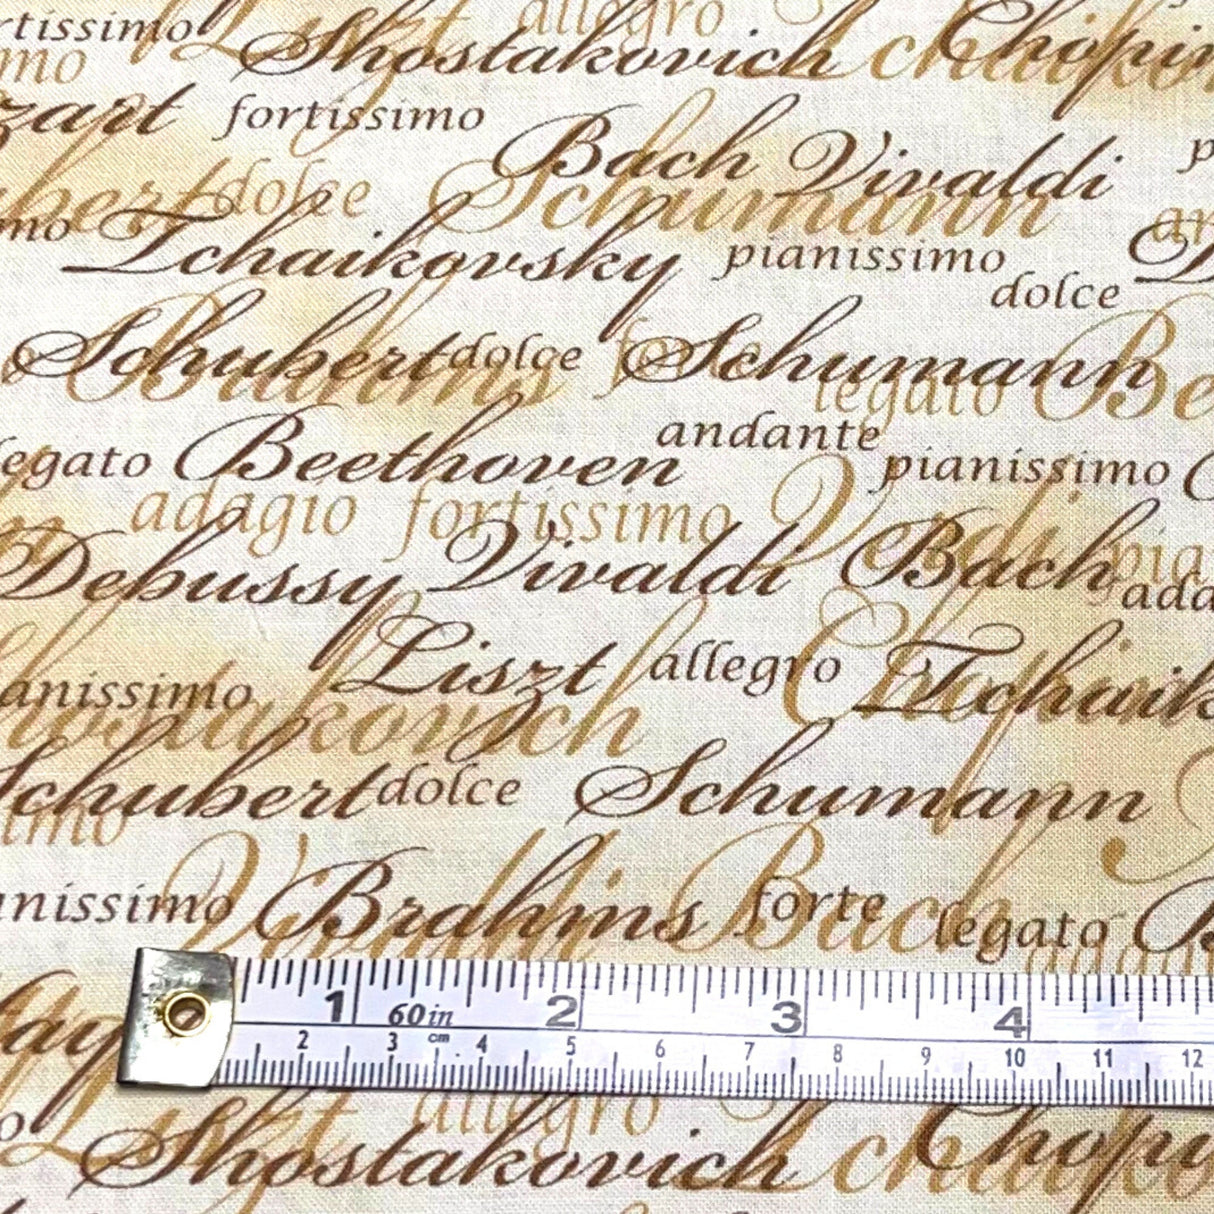 rtissimo Liszt allegro
mo Shostakovich Chopin
zart fortissimo
Bach Vivaldi p
bert dolce Schumann
mo Tchaikovsky pianissimo
dolce
Schubert dolce Schumann
Brahms forte legato Be
andante
legato Beethoven pianissimo
adagio fortissimo Verdi
Debussy Vivaldi Bach pia
ada
Liszt allegro Chopin Tchaik
anissimo
Shostakovich
Schubert dolce Schumann
simo
anissimo Brahms forte
Vivaldi Bach legato B
1 60in 2 3 4
2 3 cm 4 5 6 7 8 9 10 11 12
Liszt allegro
Shostakovich Chopi